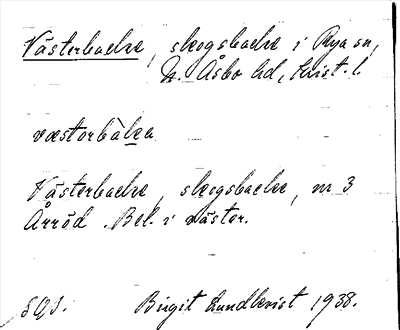 Västerbacke, skogsbacke i Rya sn,
N. Åsbo hd, Krist. l.
væstorbàka
Västerbacke, skogsbacke, nr 3
Årröd. Bel. i väster.
Birgit Lundkvist 1938.